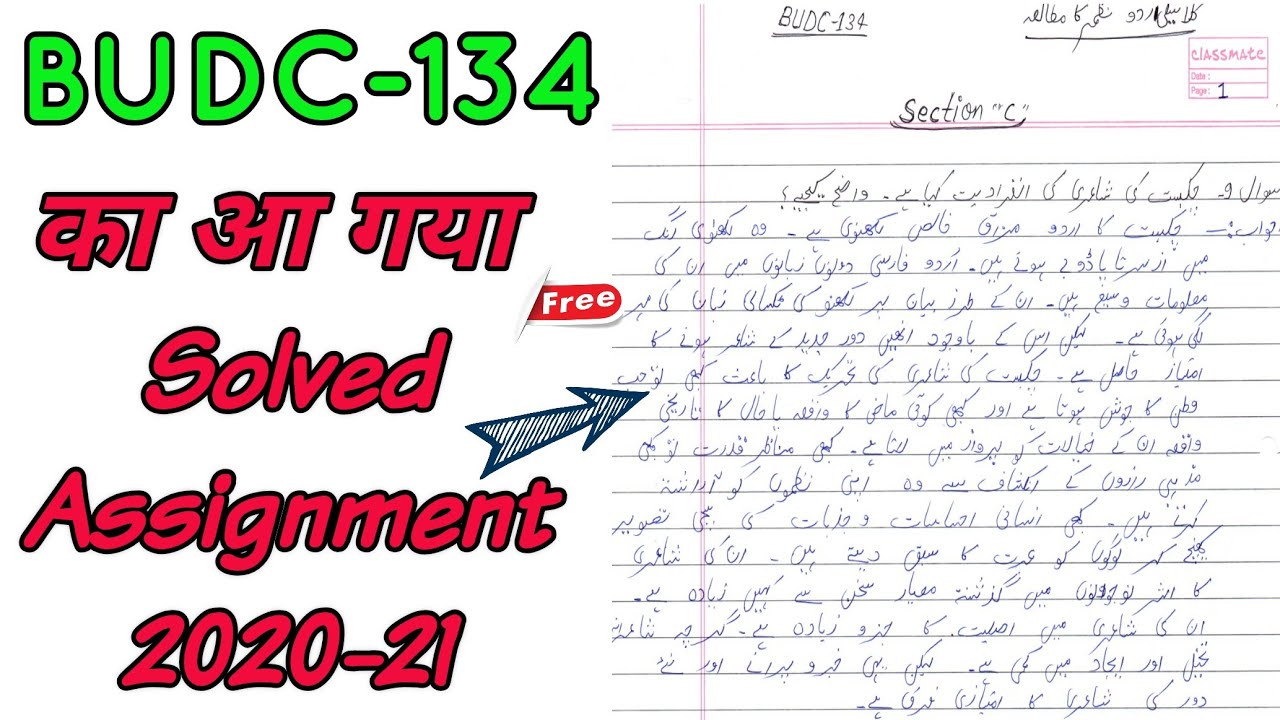 BUDC-134
का आ गया
Solved
Assignment
2020-21
Free
BUDC-134
کلاسیکی اردو نظم کا مطالعہ
classmate
Date :
Page : 1
Section "C"
سوال 9- چکبست کی شاعری کی انفرادیت کیا ہے۔ واضح کیجیے؟
جواب:- چکبست کا اردو مذاق خالص لکھنوی ہے۔ وہ لکھنوی رنگ
میں از سرتاپا ڈوبے ہوئے ہیں۔ اُردو فارسی دونوں زبانوں میں ان کی
معلومات وسیع ہیں۔ ان کے طرز بیان پر لکھنو کی ٹکسالی زبان کی مہر
لگی ہوئی ہے۔ لیکن اس کے باوجود انھیں دور جدید کے شاعر ہونے کا
امتیاز حاصل ہے۔ چکبست کی شاعری کی تحریک کا باعث کبھی تو حب
وطن کا جوش ہوتا ہے اور کبھی کوئی ماضی کا واقعہ یا حال کا تاریخی
واقعہ ان کے خیالات کو پرواز میں لاتا ہے۔ کبھی مناظر قدرت تو کبھی
مذہبی رازوں کے انکشاف سے وہ اپنی نظموں کو آراستہ
کرتے ہیں۔ کبھی انسانی احساسات و جذبات کی سچی تصویر
کھینچ کر لوگوں کو عبرت کا سبق دیتے ہیں۔ ان کی شاعری
کا اثر نوجوانوں میں گذشتہ معیار سخن سے کہیں زیادہ ہے۔
ان کی شاعری میں اصلیت کا جزو زیادہ ہے۔ گرچہ شاعرانہ
تخیل اور ایجاد میں کمی ہے۔ لیکن یہی جزو پرانے اور نئے
دور کی شاعری کا امتیازی فرق ہے۔